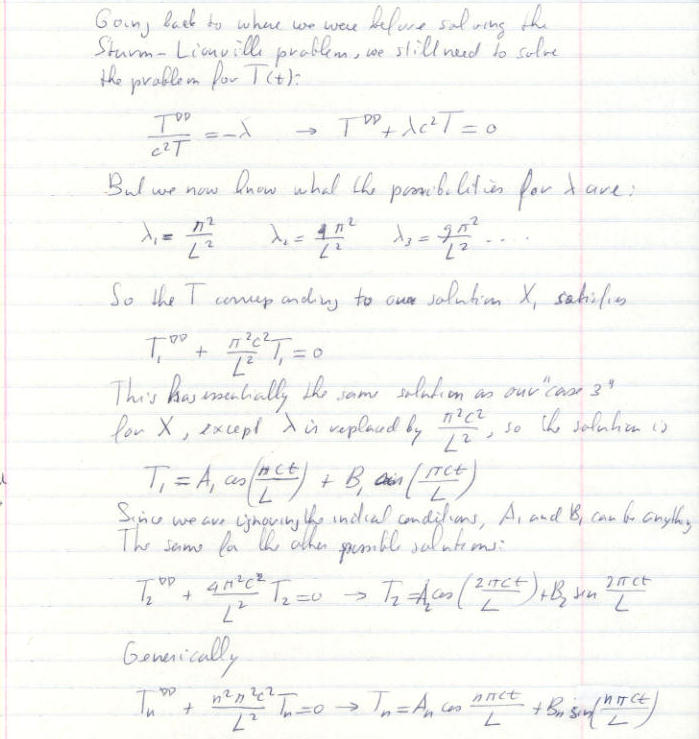 Going back to where we were before solving the
Sturm-Liouville problem, we still need to solve
the problem for T(t):
T^DD / c²T = -λ → T^DD + λc²T = 0
But we now know what the possibilities for λ are:
λ₁ = π²/L² λ₂ = 4π²/L² λ₃ = 9π²/L² ....
So the T corresponding to our solution X₁ satisfies
T₁^DD + π²c²/L² T₁ = 0
This has essentially the same solution as our "case 3"
for X, except λ is replaced by π²c²/L², so the solution is
T₁ = A₁ cos(πct/L) + B₁ sin(πct/L)
Since we are ignoring the initial conditions, A₁ and B₁ can be anything
The same for the other possible solutions:
T₂^DD + 4π²c²/L² T₂ = 0 → T₂ = A₂ cos(2πct/L) + B₂ sin 2πct/L
Generically
Tₙ^DD + n²π²c²/L² Tₙ = 0 → Tₙ = Aₙ cos nπct/L + Bₙ sin(nπct/L)